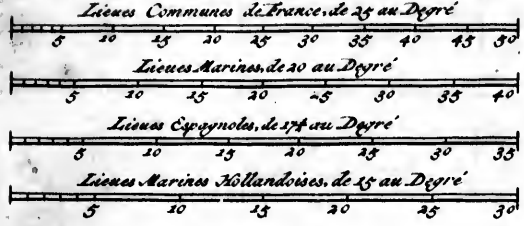 Lieues Communes de France, de 25 au Degré
5 10 15 20 25 30 35 40 45 50
Lieues Marines, de 20 au Degré
5 10 15 20 25 30 35 40
Lieues Espagnoles, de 17½ au Degré
5 10 15 20 25 30 35
Lieues Marines Hollandoises, de 15 au Degré
5 10 15 20 25 30